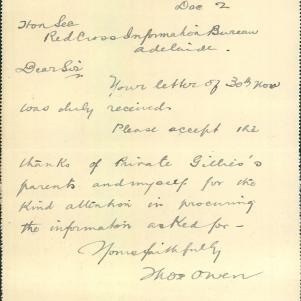 Dec 2
Hon Sec
Red Cross Information Bureau
Adelaide.
Dear Sir
Your letter of 30th Nov
was duly received
Please accept the
thanks of Private Gillies's
parents and myself for the
kind attention in procuring
the information asked for -
Yours faithfully
Thos Owen